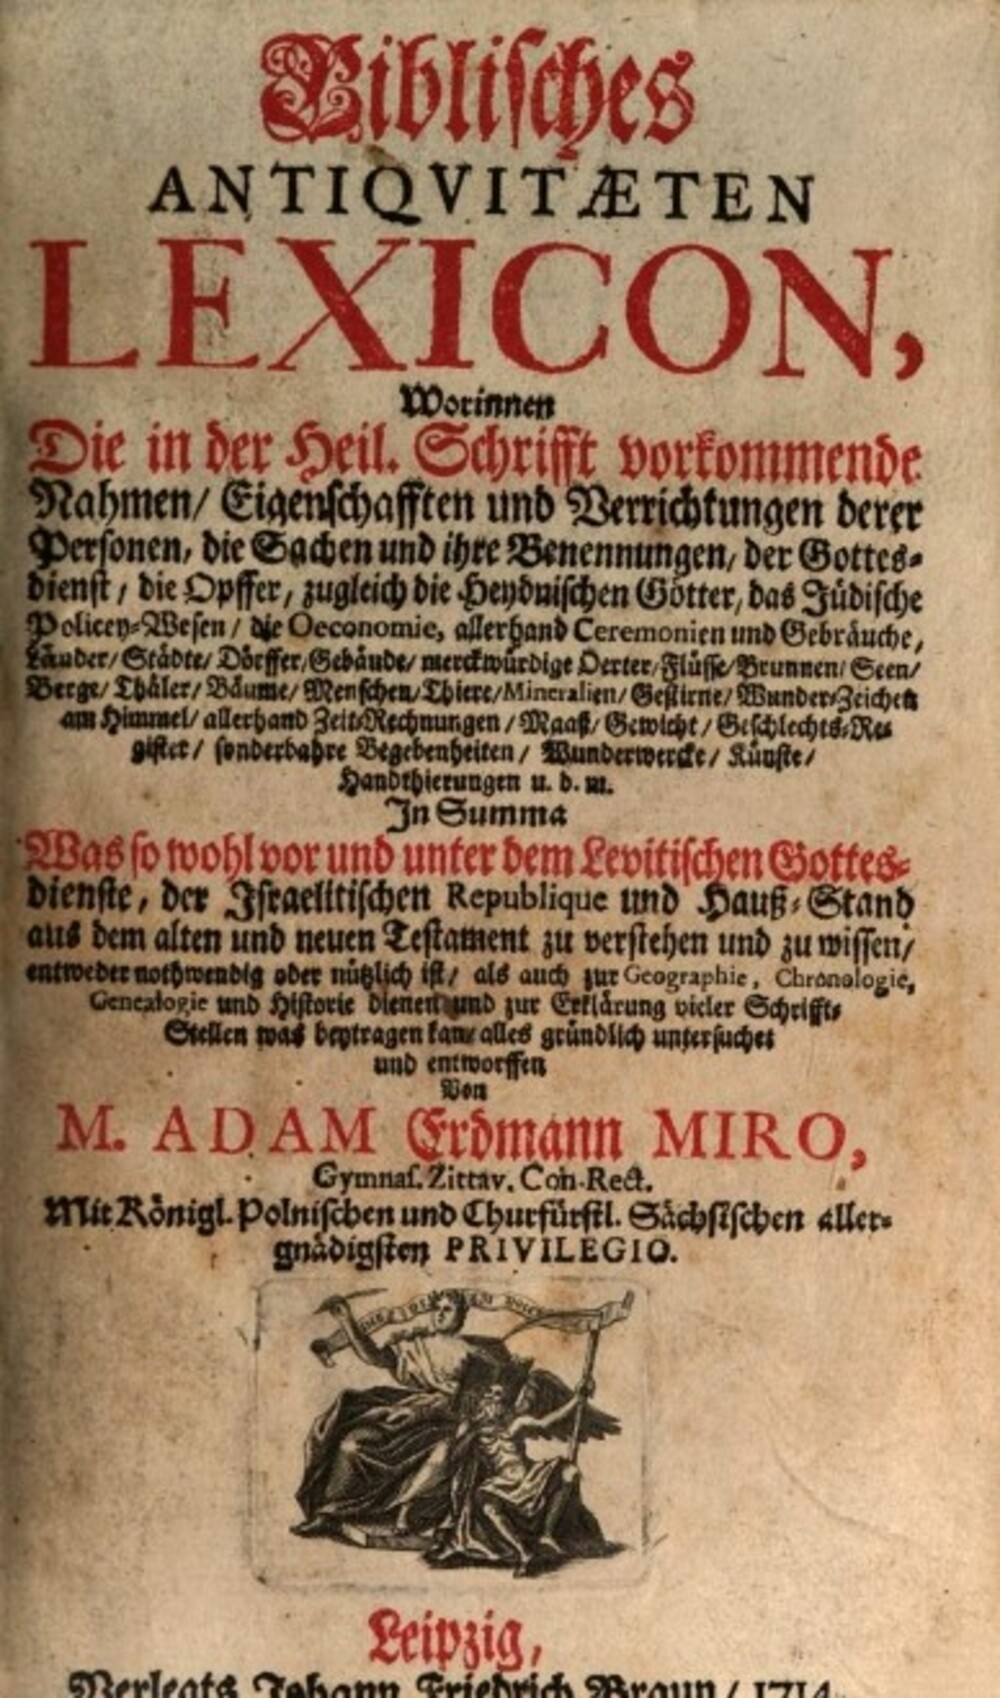 Biblisches
ANTIQVITÆTEN
LEXICON,
Worinnen
Die in der Heil. Schrifft vorkommende
Nahmen/ Eigenschafften und Verrichtungen derer
Personen, die Sachen und ihre Benennungen, der Gottes-
dienst, die Opffer, zugleich die Heydnischen Götter, das Jüdische
Policey-Wesen/ die Oeconomie, allerhand Ceremonien und Gebräuche,
Länder/ Städte/ Dörffer, Gebäude/ merckwürdige Oerter, Flüsse/ Brunnen/ Seen/
Berge/ Thäler/ Bäume/ Menschen/ Thiere/ Mineralien/ Gestirne/ Wunder-Zeichen
am Himmel/ allerhand Zeit-Rechnungen/ Maaß/ Gewicht/ Geschlechts-Re-
gister/ sonderbahre Begebenheiten/ Wunderwercke/ Künste/
Handthierungen u. d. m.
In Summa
Was so wohl vor und unter dem Levitischen Gottes-
dienste, der Israelitischen Republique und Hauß-Stand
aus dem alten und neuen Testament zu verstehen und zu wissen/
entweder nothwendig oder nützlich ist/ als auch zur Geographie, Chronologie,
Genealogie und Historie dienen und zur Erklärung vieler Schrifft-
Stellen was beytragen kan/ alles gründlich untersuchet
und entworffen
Von
M. ADAM Erdmann MIRO,
Gymnas. Zittav. Con-Rect.
Mit Königl. Polnischen und Churfürstl. Sächsischen aller-
gnädigsten PRIVILEGIO.
Leipzig,
Verlegts Johann Friedrich Braun/ 1714.